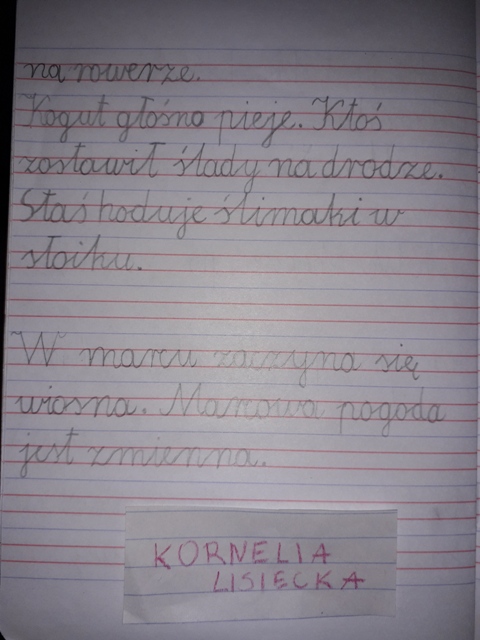 na rowerze.
Kogut głośno pieje. Ktoś
zostawił ślady na drodze.
Staś hoduje ślimaki w
słoiku.
W marcu zaczyna się
wiosna. Marcowa pogoda
jest zmienna.
KORNELIA
LISIECKA